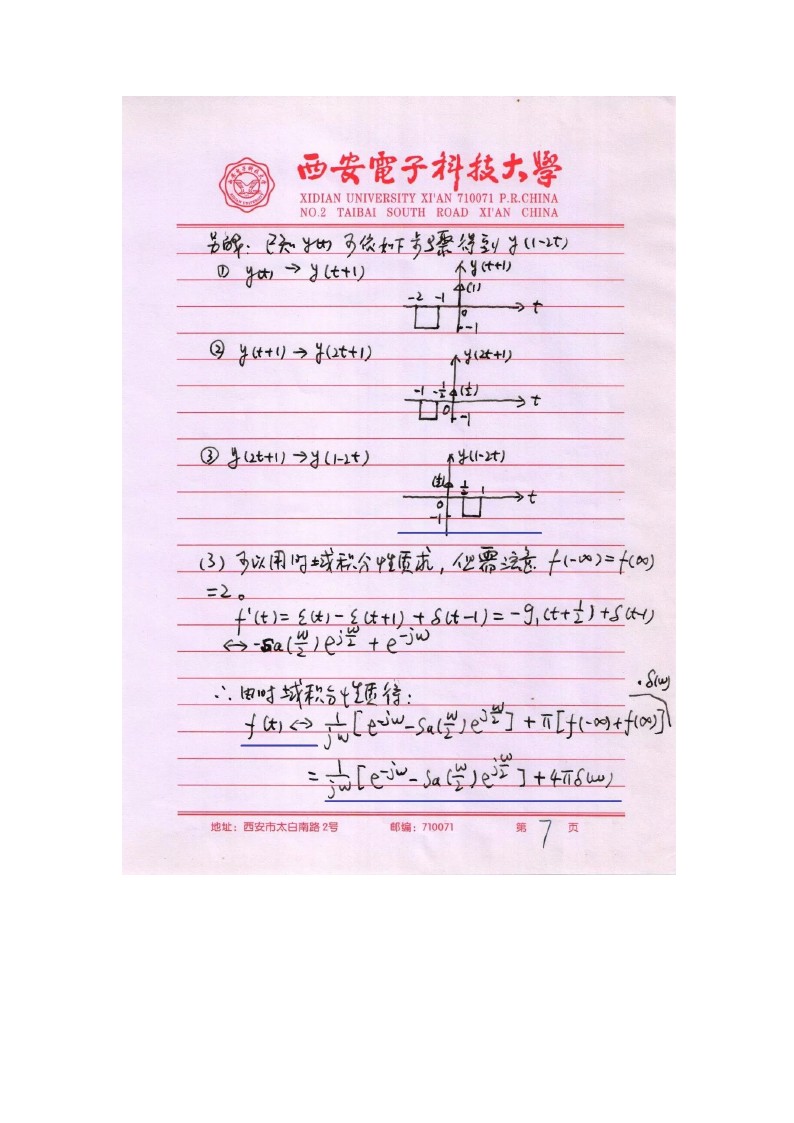 西安電子科技大學
XIDIAN UNIVERSITY XI'AN 710071 P.R.CHINA
NO.2 TAIBAI SOUTH ROAD XI'AN CHINA
另解：已知 y(t) 可依如下步骤得到 y(1-2t)
① y(t) → y(t+1)
y(t+1)
(1)
-2 -1 0 t
-1
② y(t+1) → y(2t+1)
y(2t+1)
-1 -1/2 (1/2)
0 t
-1
③ y(2t+1) → y(1-2t)
y(1-2t)
(1/2) 1/2 1
0 t
-1
(3) 可以用时域积分性质求，但需注意 f(-∞)=f(∞)
=2。
f'(t)= ε(t)-ε(t+1)+δ(t-1)=-g₁(t+1/2)+δ(t-1)
↔ -Sa(ω/2)e^{jω/2} + e^{-jω}
∴ 由时域积分性质得：
·δ(ω)
f(t) ↔ 1/jω [e^{-jω}-Sa(ω/2)e^{jω/2}] + π[f(-∞)+f(∞)]
= 1/jω [e^{-jω}-Sa(ω/2)e^{jω/2}] + 4πδ(ω)
地址：西安市太白南路2号 邮编：710071 第 7 页